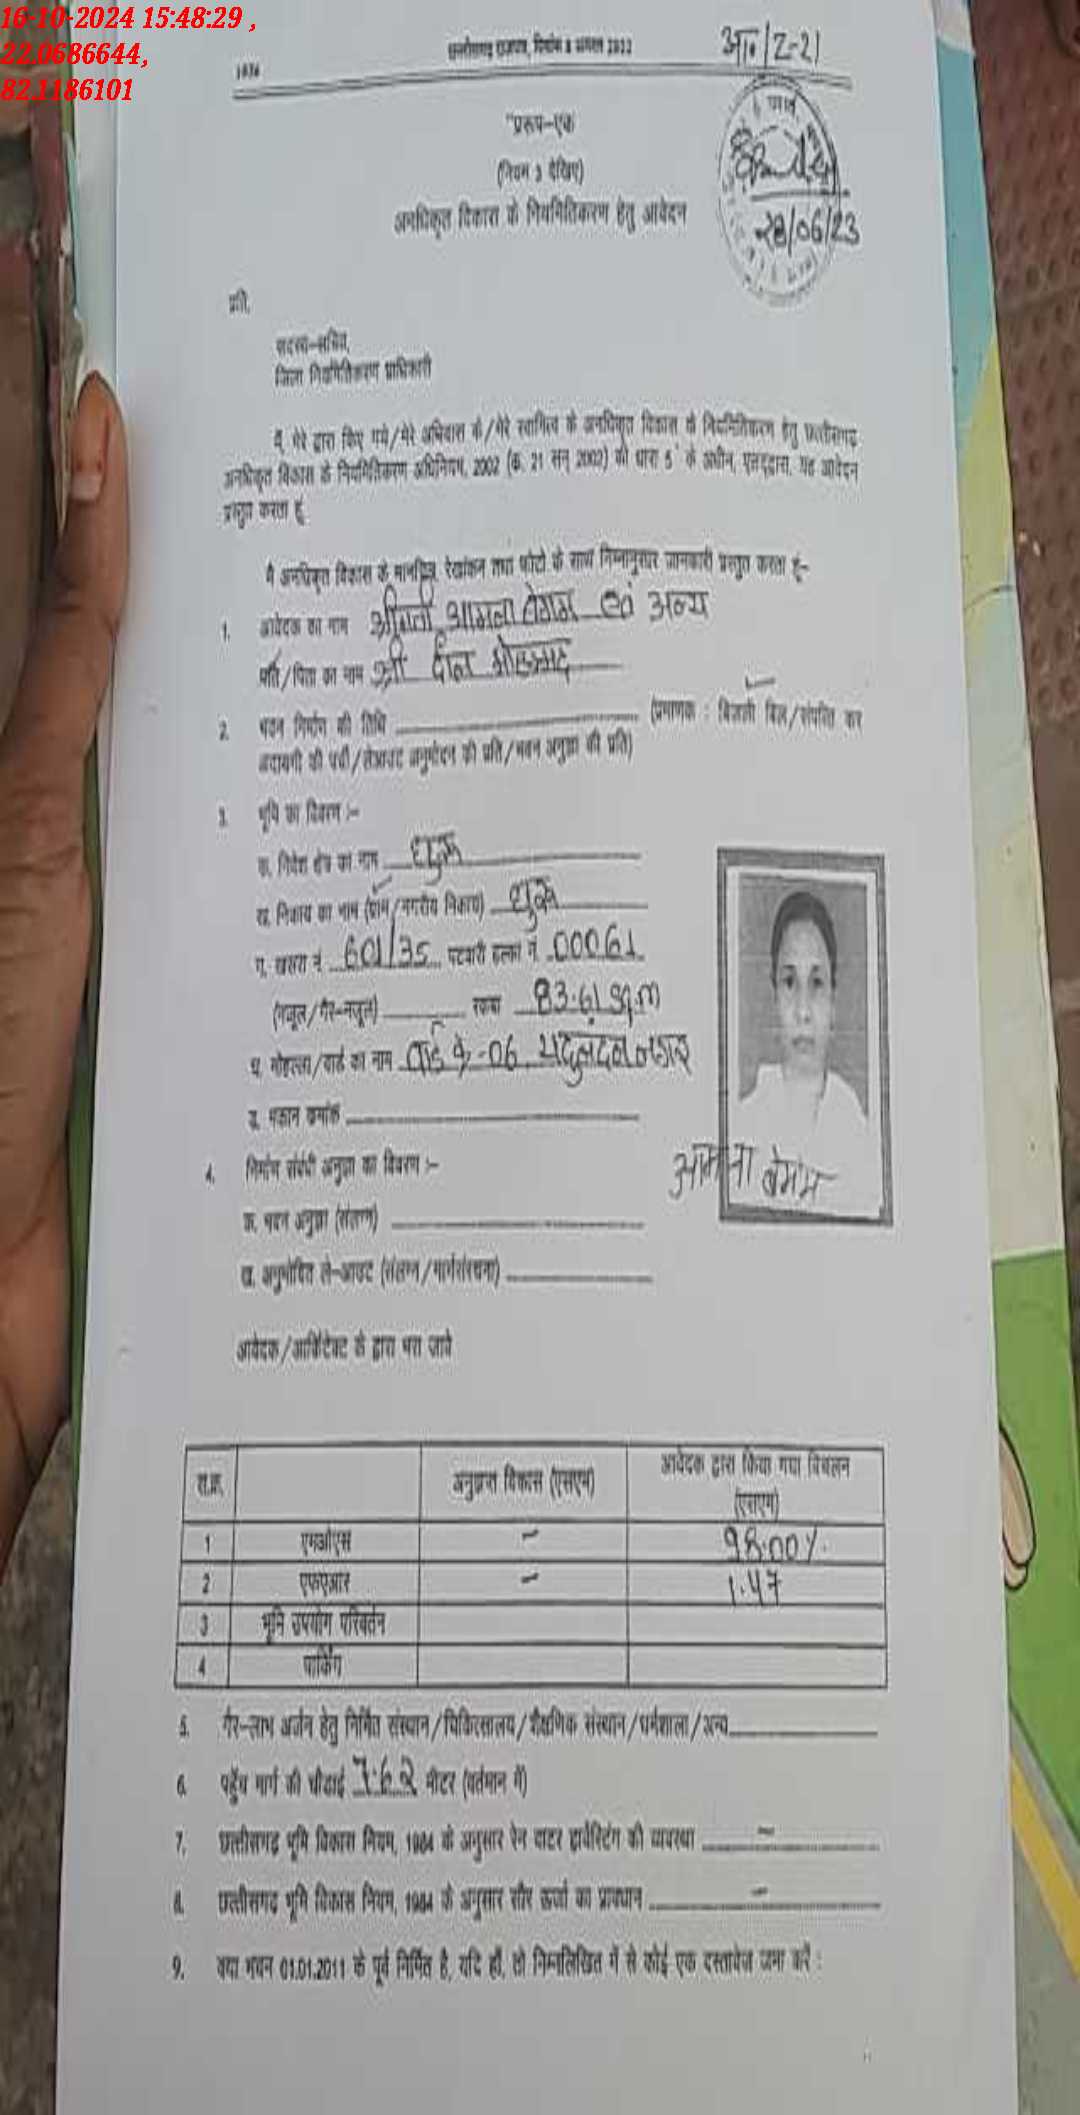 16-10-2024 15:48:29 ,
22.0686644,
82.1186101
1036
छत्तीसगढ़ राजपत्र, दिनांक 8 अगस्त 2022
आ०/Z-21
"प्ररूप-एक
(नियम 3 देखिए)
अनधिकृत विकास के नियमितिकरण हेतु आवेदन
28/06/23
प्रति,
सदस्य-सचिव,
जिला नियमितिकरण प्राधिकारी
मैं, मेरे द्वारा किए गये/मेरे अधिवास के/मेरे स्वामित्व के अनधिकृत विकास के नियमितिकरण हेतु छत्तीसगढ़
अनधिकृत विकास के नियमितिकरण अधिनियम, 2002 (क्र. 21 सन् 2002) की धारा 5 के अधीन, एतद्द्वारा, यह आवेदन
प्रस्तुत करता हूं.
मैं अनधिकृत विकास के मानचित्र, रेखांकन तथा फोटो के साथ निम्नानुसार जानकारी प्रस्तुत करता हूं:-
1. आवेदक का नाम श्रीमती आमना बेगम एवं अन्य
पति/पिता का नाम श्री दील मोहम्मद
2. भवन निर्माण की तिथि (प्रमाणक : बिजली बिल/संपत्ति कर
अदायगी की पर्ची/लेआउट अनुमोदन की प्रति/भवन अनुज्ञा की प्रति)
3. भूमि का विवरण :-
क. निवेश क्षेत्र का नाम
ख. निकाय का नाम (ग्राम/नगरीय निकाय)
ग. खसरा नं 601/35 पटवारी हल्का नं. 00061
(नजूल/गैर-नजूल) रकबा 83.61 sq.m
घ. मोहल्ला/वार्ड का नाम वार्ड क्र.-06
ङ. मकान क्रमांक
आमना बेगम
4. निर्माण संबंधी अनुज्ञा का विवरण :-
क. भवन अनुज्ञा (संलग्न)
ख. अनुमोदित ले-आउट (संलग्न/मार्गसंरचना)
आवेदक/आर्किटेक्ट के द्वारा भरा जावे
स.क्र. अनुज्ञप्त विकास (एसएम) आवेदक द्वारा किया गया विचलन
(एसएम)
1 एमओएस - 98.00%
2 एफएआर - 1.47
3 भूमि उपयोग परिवर्तन
4 पार्किंग
5. गैर-लाभ अर्जन हेतु निर्मित संस्थान/चिकित्सालय/शैक्षणिक संस्थान/धर्मशाला/अन्य
6. पहुँच मार्ग की चौड़ाई 7.62 मीटर (वर्तमान में)
7. छत्तीसगढ़ भूमि विकास नियम, 1984 के अनुसार रेन वाटर हार्वेस्टिंग की व्यवस्था -
8. छत्तीसगढ़ भूमि विकास नियम, 1984 के अनुसार सौर ऊर्जा का प्रावधान -
9. क्या भवन 01.01.2011 के पूर्व निर्मित है, यदि हाँ, तो निम्नलिखित में से कोई एक दस्तावेज जमा करें :